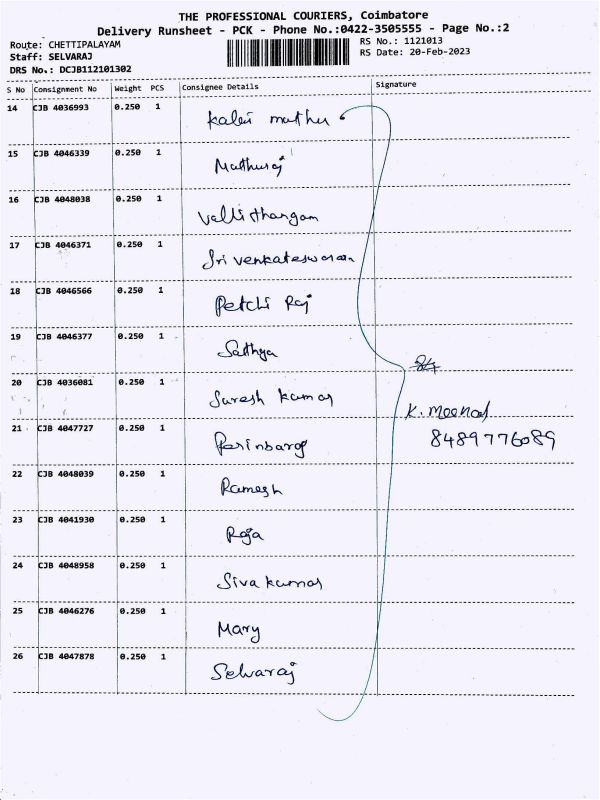 THE PROFESSIONAL COURIERS, Coimbatore
Delivery Runsheet - PCK - Phone No.:0422-3505555 - Page No.:2
Route: CHETTIPALAYAM
RS No.: 1121013
Staff: SELVARAJ
RS Date: 20-Feb-2023
DRS No.: DCJB112101302
S No Consignment No Weight PCS Consignee Details Signature
14 CJB 4036993 0.250 1 Kalai muthu
15 CJB 4046339 0.250 1 Muthuraj
16 CJB 4048038 0.250 1 Valli thangam
17 CJB 4046371 0.250 1 Sri venkateswaran
18 CJB 4046566 0.250 1 Petchi Raj
19 CJB 4046377 0.250 1 Sathya
20 CJB 4036081 0.250 1 Suresh kumar
K. Meenal
21 CJB 4047727 0.250 1
8489776089
22 CJB 4048039 0.250 1 Ramesh
23 CJB 4041930 0.250 1 Raja
24 CJB 4048958 0.250 1 Siva kumar
25 CJB 4046276 0.250 1 Mary
26 CJB 4047878 0.250 1 Selvaraj